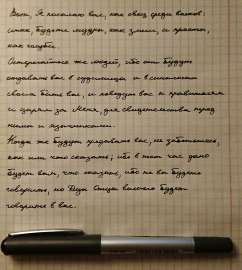 Вот, Я посылаю вас, как овец среди волков:
итак, будьте мудры, как змии, и просты,
как голуби.
Остерегайтесь же людей, ибо они будут
отдавать вас в судилища и в синагогах
своих бить вас, и поведут вас к правителям
и царям за Меня, для свидетельства перед
ними и язычниками.
Когда же будут предавать вас, не заботьтесь,
как или что сказать; ибо в тот час дано
будет вам, что сказать, ибо не вы будете
говорить, но Дух Отца вашего будет
говорить в вас.